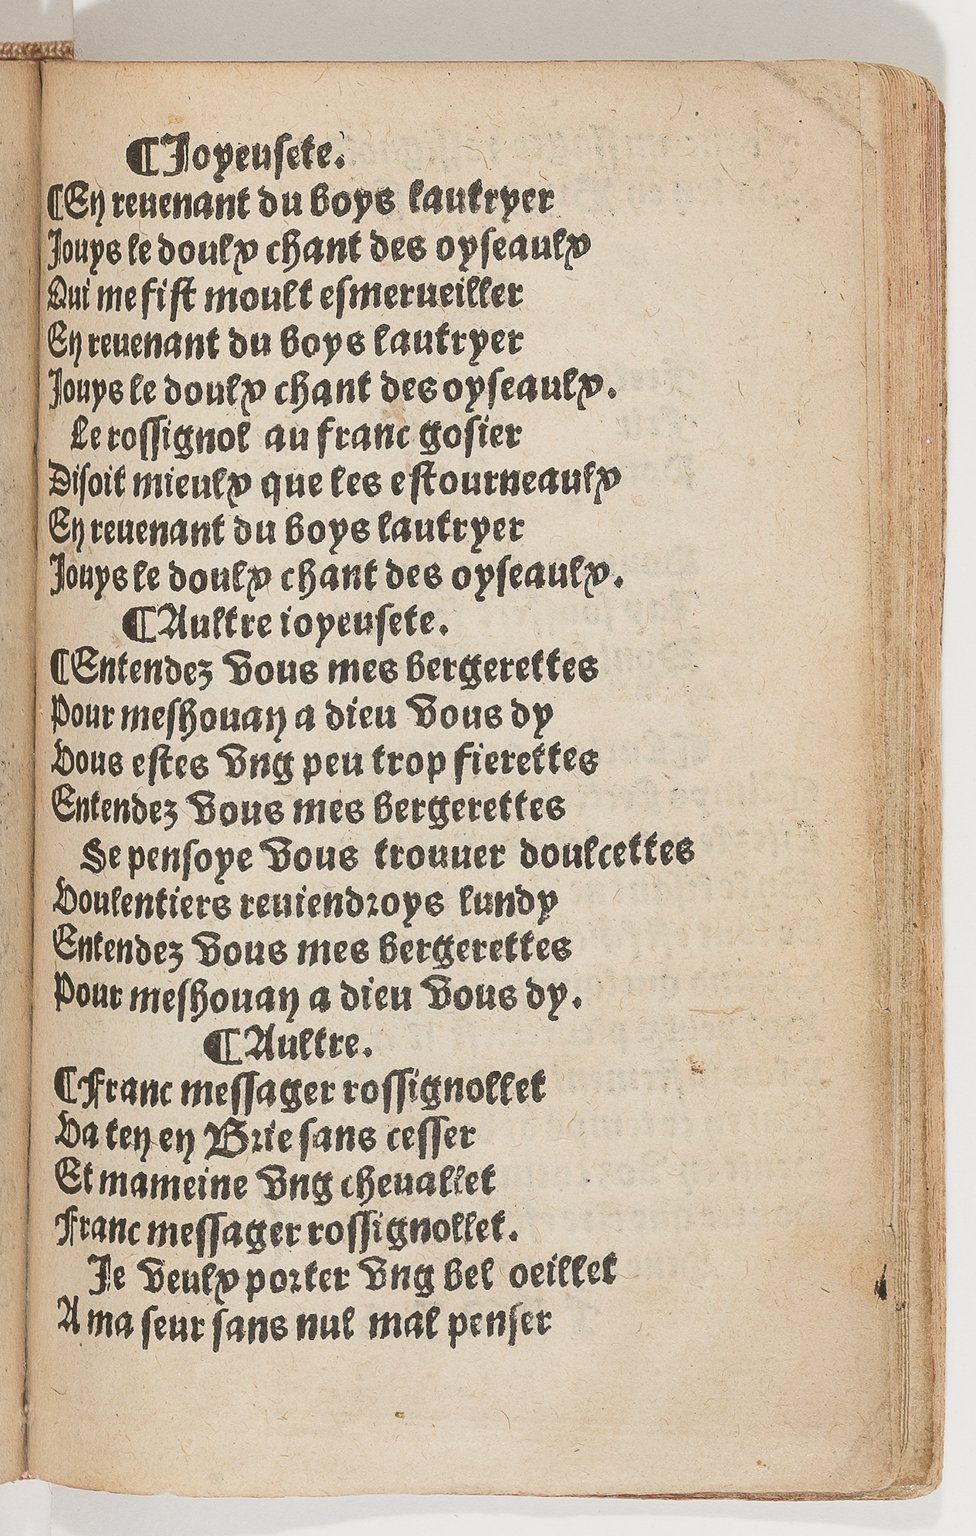 ¶Joyeusete.
¶En reuenant du boys lautryer
Jouys le doulx chant des oyseaulx
Qui me fist moult esmerueiller
En reuenant du boys lautryer
Jouys le doulx chant des oyseaulx.
Le rossignol au franc gosier
Disoit mieulx que les estourneaulx
En reuenant du boys lautryer
Jouys le doulx chant des oyseaulx.
¶Aultre ioyeusete.
¶Entendez vous mes bergerettes
Pour meshouan a dieu vous dy
Vous estes vng peu trop fierettes
Entendez vous mes bergerettes
Se pensoye vous trouuer doulcettes
Voulentiers reuiendroys lundy
Entendez vous mes bergerettes
Pour meshouan a dieu vous dy.
¶Aultre.
¶Franc messager rossignollet
Va ten en Brie sans cesser
Et mameine vng cheuallet
Franc messager rossignollet.
Je veulx porter vng bel oeillet
A ma seur sans nul mal penser